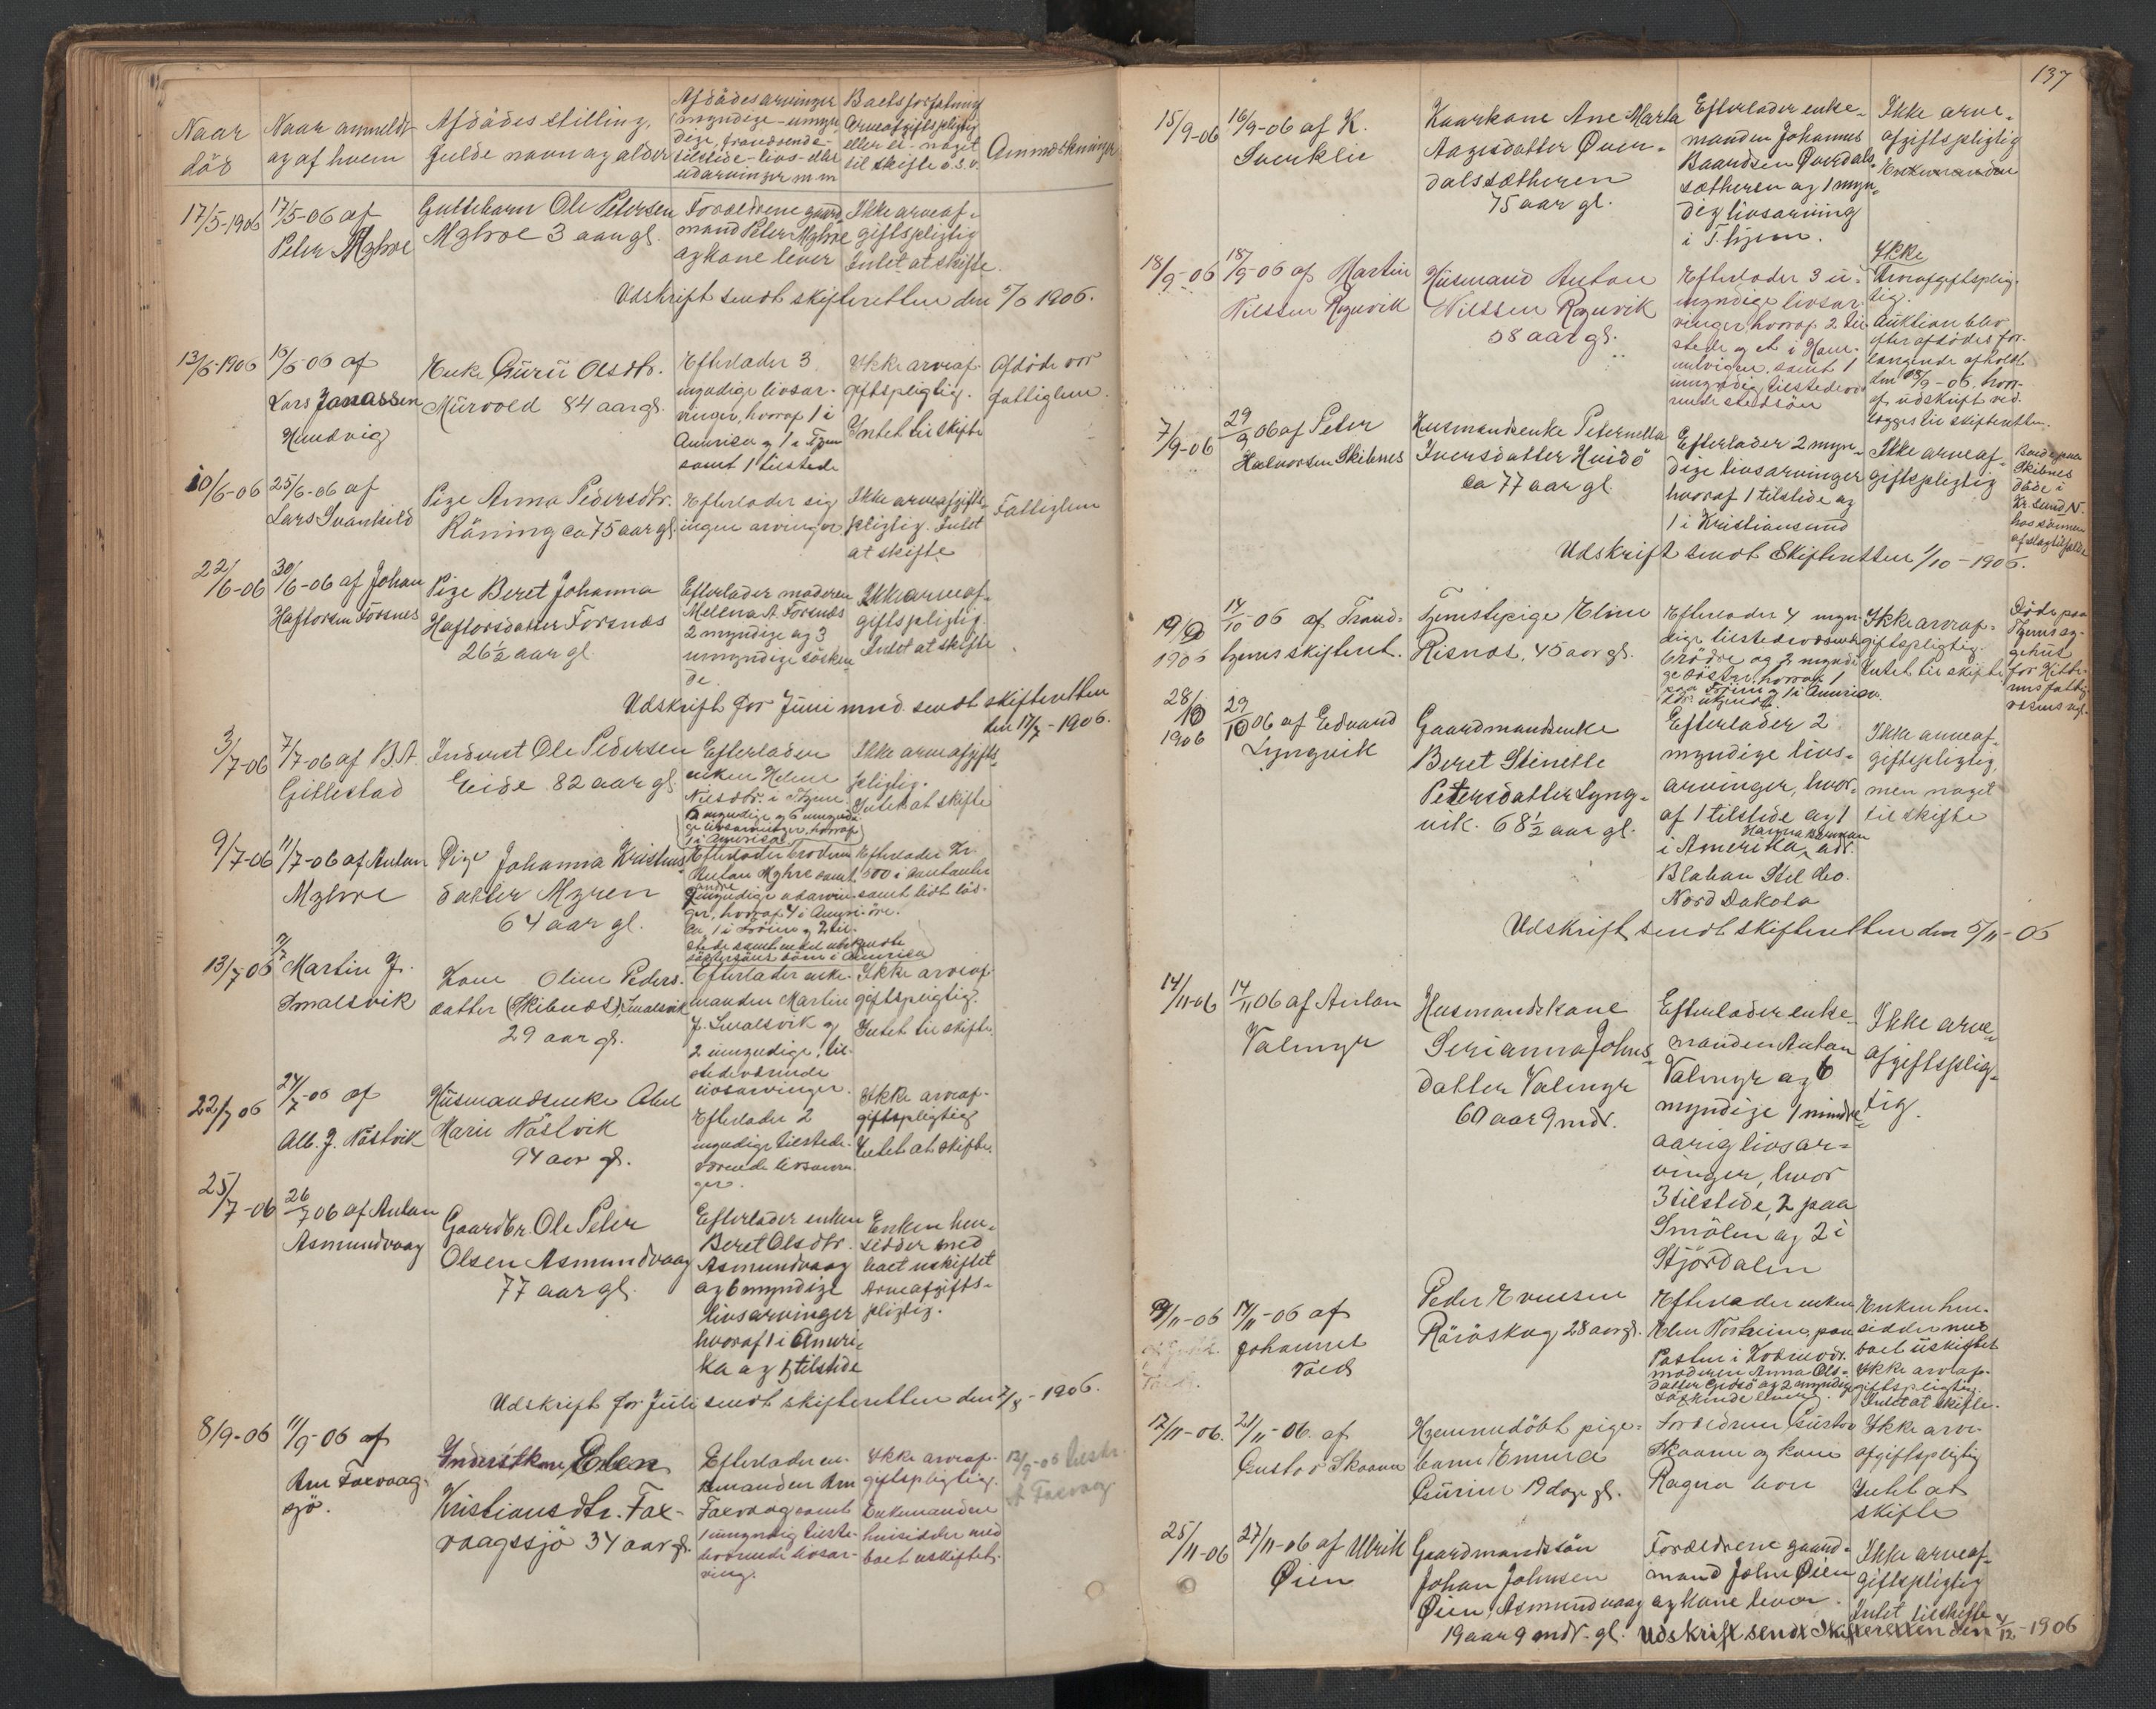 Naar
död
Naar anmeldt
og af hvem
Afdödes stilling,
fulde navn og alder
Afdödes arvinger
myndige - umyn
dige, fraværende -
tilstede - livs - eller
udarvinger m.m
Boets forfatning
Arveafgiftspligtig
eller ei - noget
til skifte o.s.v.
Anmærkninger
17/5-1906
17/5-06 af
Peter Myhre
Guttebarn Ole Petersen
Myhre 3 aar gl.
Forældrene gaard
mand Peter Myhre
og kone lever
Ikke arveaf-
giftspligtig
Intet at skifte.
Udskrift sendt skifteretten den 5/6 1906.
13/6-1906
15/6-06 af
Lars Jonassen
Hundvig
Enke Guru Olsdtr.
Murvold 84 aar gl.
Efterlader 3
myndige livsar-
vinger, hvoraf 1 i
Amerika og 1 i
samt 1 tilstede
Ikke arveaf-
giftspligtig.
Intet til skifte
Afdöde var
fattiglem.
10/6-06
25/6-06 af
Lars Svankild
Pige Anna Pedersdtr.
Röning ca 75 aar gl.
Efterlader sig
ingen arvinger
Ikke arveafgifts-
pligtig. Intet
at skifte
Fattiglem
22/6-06
30/6-06 af Johan
Haftorsen Forsnes
Pige Beret Johanna
Haftorsdatter Forsnæs
26 1/2 aar gl.
Efterlader moderen
Melena A. Forsnæs
2 myndige og 3
umyndige sösken
de
Ikke arveaf-
giftspligtig.
Intet at skifte
Udskrift for Juni mnd. sendt skifteretten
den 17/7-1906.
3/7-06
7/7-06 af B.A.
Gjillestad
Inderst Ole Pedersen
Eide 82 aar gl.
Efterlader
enken Helene
Nilsdtr. i
myndige og 6 umyndi
ge livsarvinger, hvoraf
1 i Amerika
Ikke arveafgifts-
pligtig.
Intet at skifte
9/7-06
11/7-06 af Anton
Myhre
Pige Johanna Kristens-
datter Myren
64 aar gl.
Efterlader broderen
Anton Myhre samt
andre
myndige udarvin-
ger, hvoraf 4 i Ameri-
ka, 1 i og 2 til-
stede samt en del ubekjendte
söstersöns börn i Amerika
Efterlader Kr.
500 i contanter
samt lidt lös-
öre.
13/7-06
Martin J.
Smalsvik
Kone Oline Peders-
datter (Skibnæs) Smalsvik
29 aar gl.
Efterlader enke-
manden Martin
J. Smalsvik og
2 umyndige, til-
stedeværende
livsarvinger.
Ikke arveaf-
giftspligtig.
Intet til skifte.
22/7 06
24/7-06 af
Alb. J. Nöstvik
Husmandsenke Abel
Marie Nöstvik
94 aar gl.
Efterlader 2
myndige tilstede-
værende livsarvin-
ger.
Ikke arveaf-
giftspligtig
Intet at skifte.
25/7-06
26/7 06 af Anton
Asmundvaag
Gaardbr. Ole Peter
Olsen Asmundvaag
77 aar gl.
Efterlader enken
Beret Olsdtr.
Asmundvaag
og 6 myndige
livsarvinger
hvoraf 1 i Ameri-
ka og 5 tilstede
Enken hen-
sidder med
boet uskiftet
Arveafgifts-
pligtig.
Udskrift for Juli sendt skifteretten den 7/8-1906.
8/9-06
11/9-06 af
Arn Faxvaag-
sjö.
Inderstkone Elen
Kristiansdtr. Fax-
vaagssjö 34 aar gl.
Efterlader en-
kemanden Arn
Faxvaag samt
1 umyndig tilste-
deværende livsar-
ving.
Ikke arveaf-
giftspligtig.
Enkemanden
hensidder med
boet uskiftet.
12/9-06
A Faxvaag
137
15/9-06
16/9-06 af K.
Sverklie
Kaarkone Ane Marta
Aagesdatter Över-
dalssætheren
75 aar gl.
Efterlader enke-
manden Johannes
Baardsen Överdals-
sætheren og 1 myn-
dig livsarving
i Thjem.
Ikke arve-
afgiftspligtig
Enkemanden
18/9-06
18/9-06 af Martin
Nilssen Røyrvik
Husmand Anton
Nilssen Røyrvik
58 aar gl.
Efterlader 3 u-
myndige livsar-
vinger, hvoraf 2 til-
stede og et i
samt 1
umyndig tilstedevæ-
rende stedsön
Ikke
Arveafgiftsplig-
tig.
Auktion blev
efter afdödes for-
langende afholdt
den 28/9-06, hvor-
af udskrift ved-
lægges til skifteretten.
7/9-06
29/9 06 af Peter
Halvorsen Skibnes
Husmandsenke Peternella
Iversdatter Hvidö
ca 77 aar gl.
Efterlader 2 myn-
dige livsarvinger
hvoraf 1 tilstede og
1 i Kristiansund
Ikke arveaf-
giftspligtig
Boede paa
Skibnes
döde i
Kr.sund N.
hos sönnen
af slagtilfælde
Udskrift sendt Skifteretten 1/10-1906.
19/9
1906
14/10-06 af Trond-
hjems skifteret.
Tjenestepige Eline
Risnæs, 45 aar gl.
Efterlader 4 myn-
dige tilstedeværende
brödre og 2 myndi-
ge söstre, hvoraf 1
paa og 1 i Amerika.
Ikke arveaf-
giftspligtig.
Intet til skifte
Döde paa
Tjems sy-
gehus
for Hitte-
rens fattig-
væsens regn.
28/10
1906
29/10 06 af Edvard
Lyngvik
Gaardmandsenke
Beret Stinelle
Petersdatter Lyng-
vik. 68 1/2 aar gl.
Efterlader 2
myndige livs-
arvinger, hvor-
af 1 tilstede og 1
i Amerika, adr.
Blahan Stel Co.
Nord Dakota
Ikke arveaf-
giftspligtig,
men noget
til skifte
Udskrift sendt skifteretten den 5/11-06
14/11-06
14/11 06 af Anton
Valmyr
Husmandskone
Serianna Johns-
datter Valmyr
60 aar 9 mdr.
Efterlader enke-
manden Anton
Valmyr og 6
myndige 1 mindre-
aarig livsar-
vinger, hvor
3 tilstede, 2 paa
Smölen og 2 i
Stjördalen
Ikke arve-
afgiftsplig-
tig.
9/11-06
17/11-06 af
Johannes
Peder Evensen
Röröskog, 28 aar gl.
Efterlader enken
Elen paa
moderen Anna Ols-
datter og 2 myndige
söskende
Enken hen-
sidder med
boet uskiftet
Ikke arveaf-
giftspligtig.
Intet at skifte.
17/11-06.
21/11-06. af
Gustav Skaann
Hjemmedöbt pige-
barn Emma
Gurine 19 dage gl.
Forældrene Gustav
Skaann og kone
Ragna lever
Ikke arve-
afgiftspligtig
Intet at
skifte
25/11-06
27/11-06 af Ulrik
Øien
Gaardmandssön
Johan Johnsen
Øien, Asmundvaag
19 aar 9 mdr. gl.
Forældrene gaard-
mand John Øien
og kone lever.
Ikke arveaf-
giftspligtig
Intet til skifte
Udskrift sendt Skifteretten den 4/12-1906